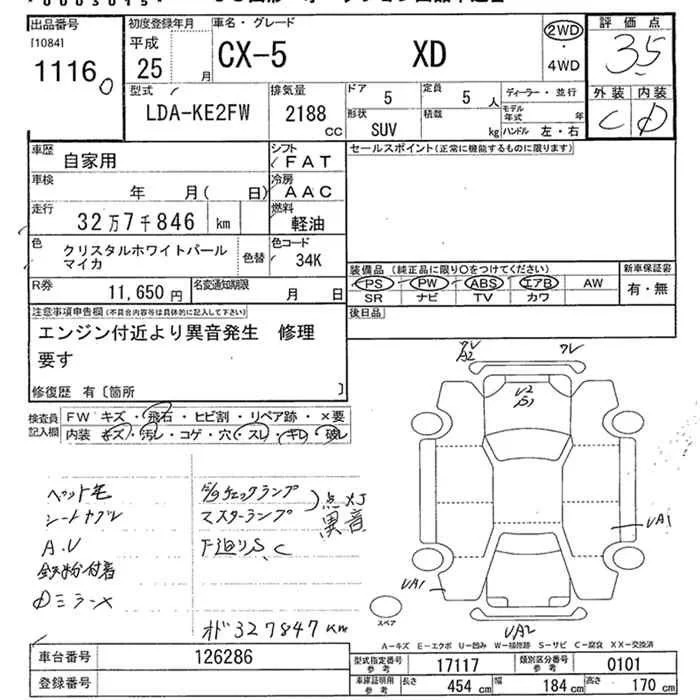 出品番号
[1084]
1116
初度登録年月
平成
25 月
車名・グレード
CX-5 XD
2WD
・
4WD
評価点
3.5
外装 内装
C D
型式
LDA-KE2FW
排気量
2188 CC
ドア 5
定員 5 人
形状 SUV
積載 kg
ディーラー・並行
モデル年式 年
ハンドル 左・右
車歴 自家用
シフト FAT
車検 年 月( 日)
冷房 AAC
走行 32万7千846 km
燃料 軽油
色 クリスタルホワイトパール
マイカ
色替
色コード 34K
R券 11,650円
名変通知期限 月 日
セールスポイント(正常に機能するものに限ります)
装備品(純正品に限り○をつけてください)
PS PW ABS エアB AW
SR ナビ TV カワ
新車保証書
有・無
後日品
注意事項申告欄(不具合内容等は具体的に記入して下さい)
エンジン付近より異音発生 修理
要す
修復歴 有〔箇所 〕
検査員
記入欄
FW キズ・飛石・ヒビ割・リペア跡・×要
内装 キズ・汚レ・コゲ・穴・スレ・キレ・破レ
ペット毛
A.U
鉄粉付着
チェックランプ
マスターランプ
点
異音
下廻りS、C
オド327847km
A2
ワレ
U2
S1
UA1
UA1
UA2
スペア
A-キズ E-エクボ U-凹み W-補修跡 S-サビ C-腐食 XX-交換済
車台番号 126286
登録番号
型式指定番号
参考
17117
類別区分番号
参考
0101
車庫証明用
参考
長さ 454 cm
幅 184 cm
高さ 170 cm